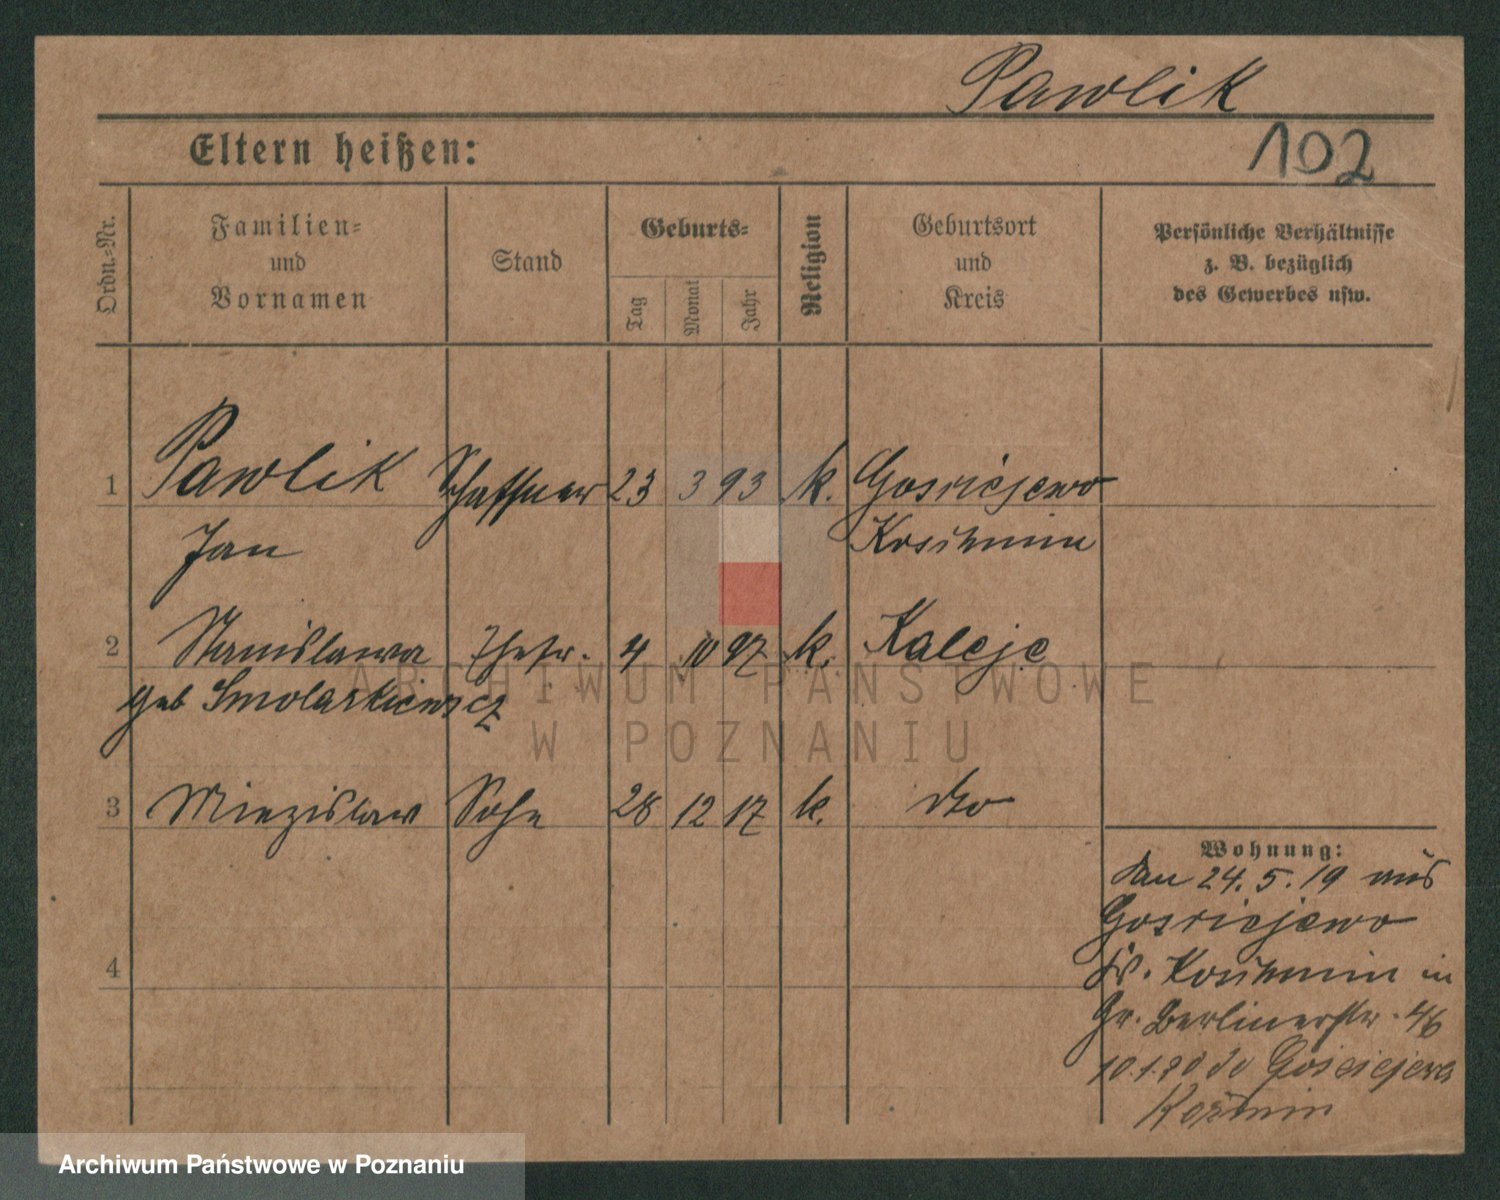 Pawlik
102
Eltern heißen:
Ordn.-Nr.
Familien-
und
Vornamen
Stand
Geburts-
Tag
Monat
Jahr
Religion
Geburtsort
und
Kreis
Persönliche Verhältnisse
z. B. bezüglich
des Gewerbes usw.
1 Pawlik Schaffner 23 3 93 k. Gosciejewo
Jan Koschmin
2 Stanislawa Ehefr. 4 10 97 k. Kaleje
geb Smolarkiewicz
3 Miezislaw Sohn 28 12 17 k. dto
Wohnung:
den 24.5.19 aus
Gosciejewo
Kr. Koschmin in
Gr. Berlinerstr. 46
10.1.20 do Gościejewa
Koźmin
4
ARCHIWUM PAŃSTWOWE
W POZNANIU
Archiwum Państwowe w Poznaniu